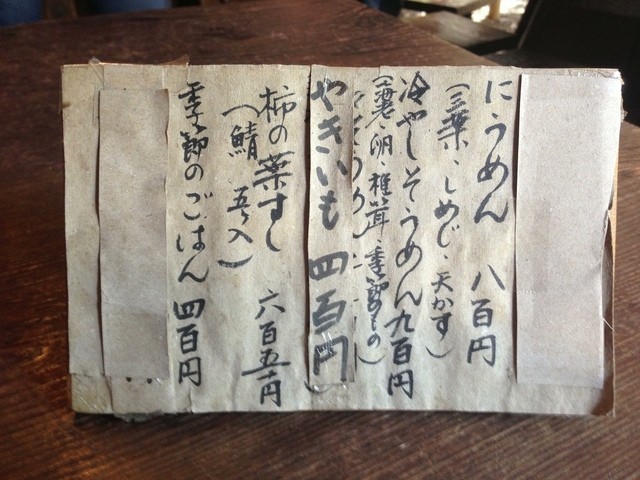 にうめん 八百円
(三葉・しめじ・天かす)
冷やしそうめん 九百円
(海老・卵・椎茸・季節もの)
やきいも 四百円
柿の葉すし 六百五十円
(鯖 五ヶ入)
季節のごはん 四百円